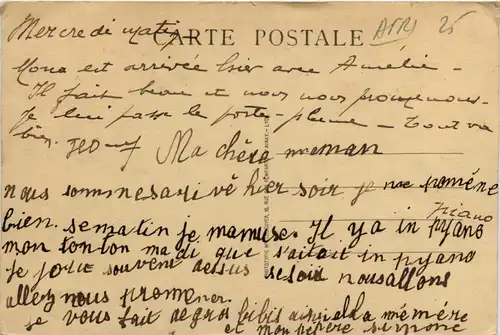 Mercredi matin
CARTE POSTALE
AFR 25
Mona est arrivée hier avec Amélie -
Il fait beau et nous nous promenons -
Je lui passe le porte-plume - Tout va
bien.
Ma chère meman
nous sommesarivé hier soir je me promène
bien. sematin je mamuse. Il ya in pyano
Piano
mon tonton ma di que s'aitait in pyano
je joue souvent dessus se soir nousallons
allez nous promener.
je vous fait de gros bibis a mémère
et mon pépère simone